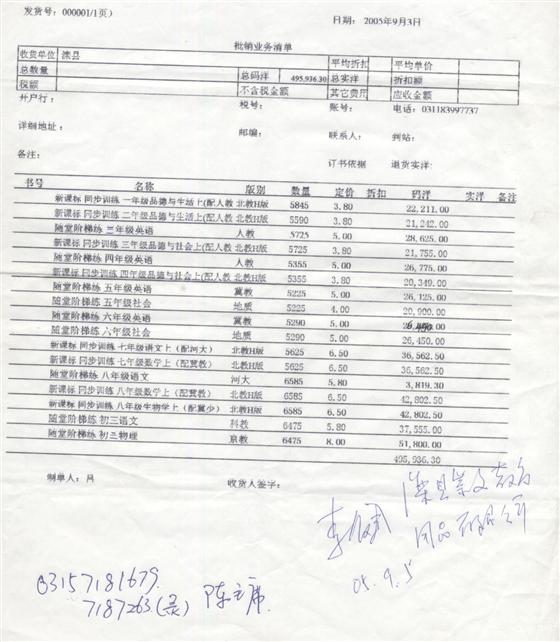 发货号：000001/1页）
日期： 2005年9月3日
批销业务清单
收货单位 滦县 平均折扣 平均单价
总数量 总码洋 495,936.30 总实洋 折扣额
税额 不含税金额 其它费用 应收金额
开户行： 税号： 账号： 电话：031183997737
详细地址： 邮编： 联系人： 到站：
备注： 订书依据 退货实洋：
书号 名称 版别 数量 定价 折扣 码洋 实洋 备注
新课标 同步训练 一年级品德与生活上(配人教 北教H版 5845 3.80 22,211.00
新课标 同步训练 二年级品德与生活上(配人教 北教H版 5590 3.80 21,242.00
随堂阶梯练 三年级英语 人教 5725 5.00 28,625.00
新课标 同步训练 三年级品德与社会上(配人教 北教H版 5725 3.80 21,755.00
随堂阶梯练 四年级英语 人教 5355 5.00 26,775.00
新课标 同步训练 四年级品德与社会上(配人教 北教H版 5355 3.80 20,349.00
随堂阶梯练 五年级英语 冀教 5225 5.00 26,125.00
随堂阶梯练 五年级社会 地质 5225 4.00 20,900.00
随堂阶梯练 六年级英语 冀教 5290 5.00
随堂阶梯练 六年级社会 地质 5290 5.00 26,450.00
新课标 同步训练 七年级语文上（配河大） 北教H版 5625 6.50 36,562.50
新课标 同步训练 七年级数学上（配冀教） 北教H版 5625 6.50 36,562.50
随堂阶梯练 八年级语文 河大 6585 5.80 3,819.30
新课标 同步训练 八年级数学上（配冀教） 北教H版 6585 6.50 42,802.50
新课标 同步训练 八年级生物学上（配冀少） 北教H版 6585 6.50 42,802.50
随堂阶梯练 初三语文 科教 6475 5.80 37,555.00
随堂阶梯练 初三物理 京教 6475 8.00 51,800.00
495,936.30
制单人：吕 收货人签字：
滦县崇文教育
用品有限公司
05.9.5
03157181679
7187263(录) 陈主席